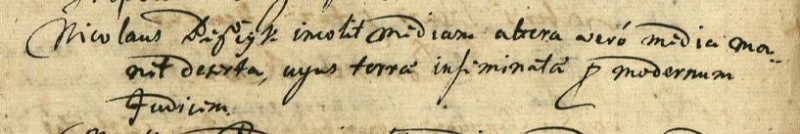 Nicolaus incolit mediam altera veró media ma-
net deserta, cujus terræ inseminatæ p modernum
Judicem.